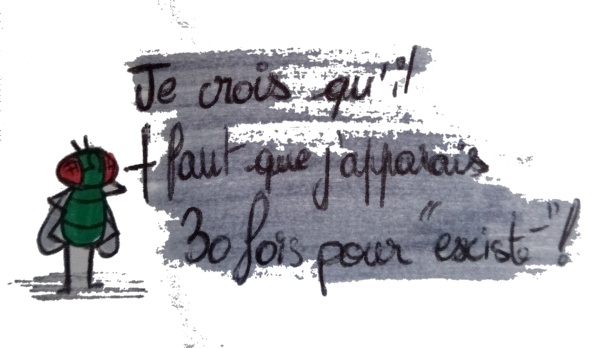 Je crois qu'il
faut que j'apparais
30 fois pour "existe"!